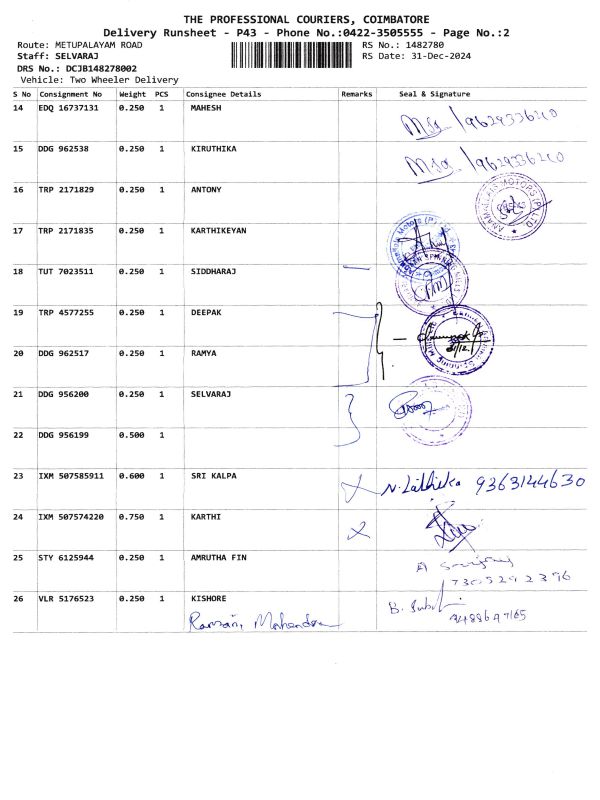 THE PROFESSIONAL COURIERS, COIMBATORE
Delivery Runsheet - P43 - Phone No.:0422-3505555 - Page No.:2
Route: METUPALAYAM ROAD RS No.: 1482780
Staff: SELVARAJ RS Date: 31-Dec-2024
DRS No.: DCJB148278002
Vehicle: Two Wheeler Delivery
S No Consignment No Weight PCS Consignee Details Remarks Seal & Signature
14 EDQ 16737131 0.250 1 MAHESH
15 DDG 962538 0.250 1 KIRUTHIKA
16 TRP 2171829 0.250 1 ANTONY
17 TRP 2171835 0.250 1 KARTHIKEYAN
18 TUT 7023511 0.250 1 SIDDHARAJ
19 TRP 4577255 0.250 1 DEEPAK
20 DDG 962517 0.250 1 RAMYA
21 DDG 956200 0.250 1 SELVARAJ
22 DDG 956199 0.500 1
23 IXM 507585911 0.600 1 SRI KALPA 9363144630
24 IXM 507574220 0.750 1 KARTHI
25 STY 6125944 0.250 1 AMRUTHA FIN
26 VLR 5176523 0.250 1 KISHORE